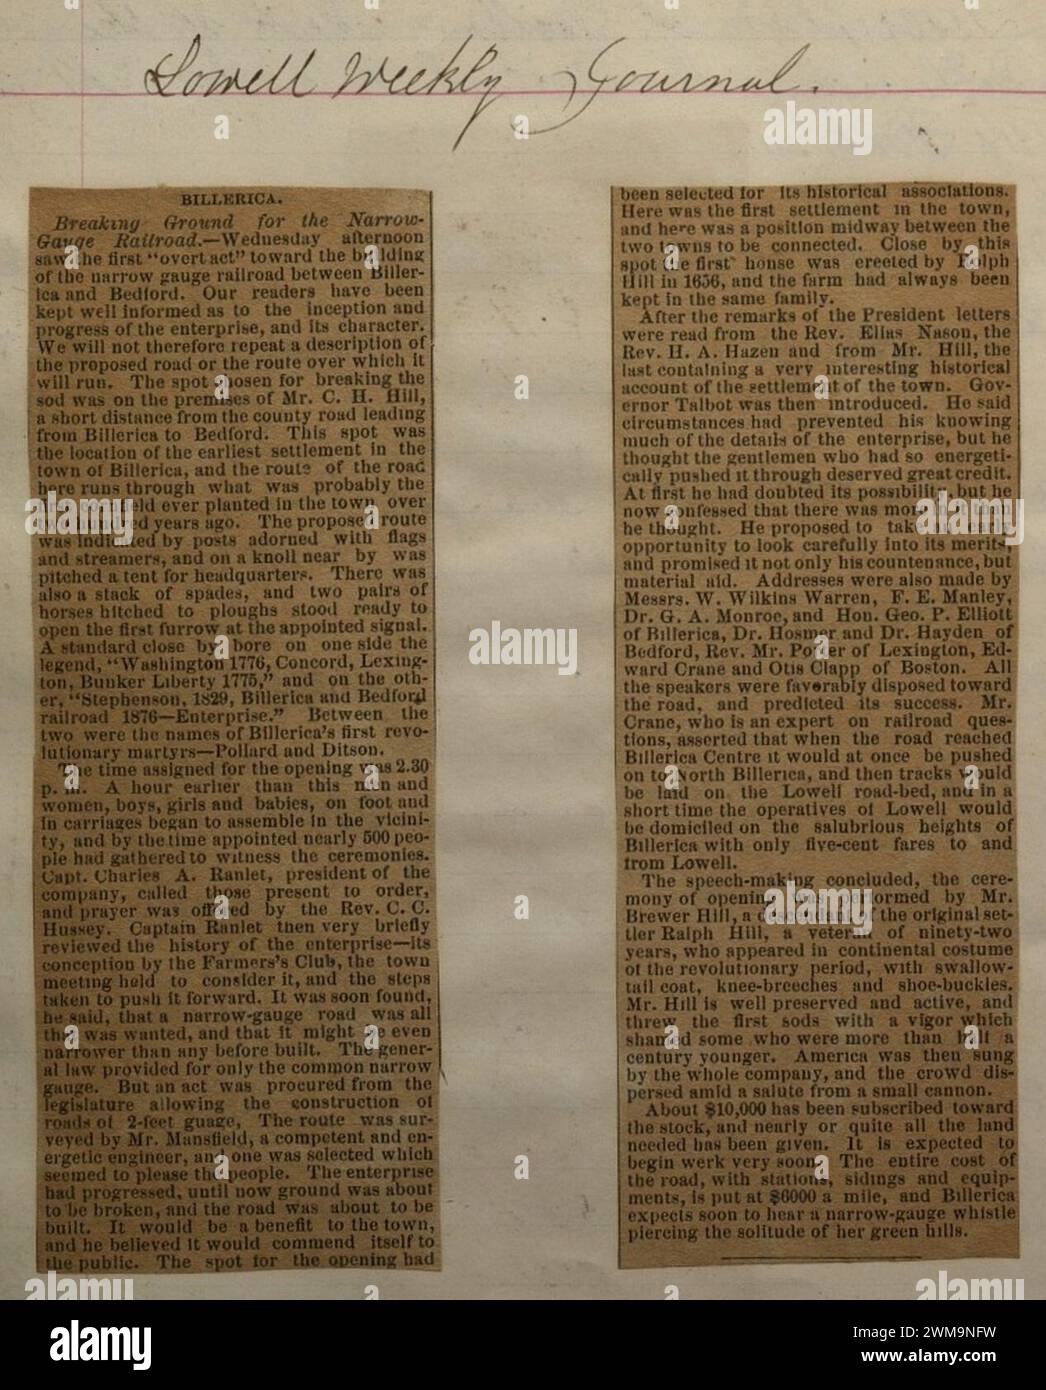 Lowell Weekly Journal.
BILLERICA.
Breaking Ground for the Narrow-
Gauge Railroad.—Wednesday afternoon
saw the first "overt act" toward the building
of the narrow gauge railroad between Biller-
ica and Bedford. Our readers have been
kept well informed as to the inception and
progress of the enterprise, and its character.
We will not therefore repeat a description of
the proposed road or the route over which it
will run. The spot chosen for breaking the
sod was on the premises of Mr. C. H. Hill,
a short distance from the county road leading
from Billerica to Bedford. This spot was
the location of the earliest settlement in the
town of Billerica, and the route of the road
here runs through what was probably the
first cornfield ever planted in the town over
two hundred years ago. The proposed route
was indicated by posts adorned with flags
and streamers, and on a knoll near by was
pitched a tent for headquarters. There was
also a stack of spades, and two pairs of
horses hitched to ploughs stood ready to
open the first furrow at the appointed signal.
A standard close by bore on one side the
legend, "Washington 1776, Concord, Lexing-
ton, Bunker Liberty 1775," and on the oth-
er, "Stephenson, 1829, Billerica and Bedford
railroad 1876—Enterprise." Between the
two were the names of Billerica's first revo-
lutionary martyrs—Pollard and Ditson.
The time assigned for the opening was 2.30
p. m. A hour earlier than this men and
women, boys, girls and babies, on foot and
in carriages began to assemble in the vicini-
ty, and by the time appointed nearly 500 peo-
ple had gathered to witness the ceremonies.
Capt. Charles A. Ranlet, president of the
company, called those present to order,
and prayer was offered by the Rev. C. C.
Hussey. Captain Ranlet then very briefly
reviewed the history of the enterprise—its
conception by the Farmers's Club, the town
meeting held to consider it, and the steps
taken to push it forward. It was soon found,
he said, that a narrow-gauge road was all
that was wanted, and that it might be even
narrower than any before built. The gener-
al law provided for only the common narrow
gauge. But an act was procured from the
legislature allowing the construction of
roads of 2-feet guage, The route was sur-
veyed by Mr. Mansfield, a competent and en-
ergetic engineer, and one was selected which
seemed to please the people. The enterprise
had progressed, until now ground was about
to be broken, and the road was about to be
built. It would be a benefit to the town,
and he believed it would commend itself to
the public. The spot for the opening had
been selected for its historical associations.
Here was the first settlement in the town,
and here was a position midway between the
two towns to be connected. Close by this
spot the first house was erected by Ralph
Hill in 1656, and the farm had always been
kept in the same family.
After the remarks of the President letters
were read from the Rev. Elias Nason, the
Rev. H. A. Hazen and from Mr. Hill, the
last containing a very interesting historical
account of the settlement of the town. Gov-
ernor Talbot was then introduced. He said
circumstances had prevented his knowing
much of the details of the enterprise, but he
thought the gentlemen who had so energeti-
cally pushed it through deserved great credit.
At first he had doubted its possibility, but he
now confessed that there was more in it than
he thought. He proposed to take an early
opportunity to look carefully into its merits,
and promised it not only his countenance, but
material aid. Addresses were also made by
Messrs. W. Wilkins Warren, F. E. Manley,
Dr. G. A. Monroe, and Hon. Geo. P. Elliott
of Billerica, Dr. Hosmer and Dr. Hayden of
Bedford, Rev. Mr. Porter of Lexington, Ed-
ward Crane and Otis Clapp of Boston. All
the speakers were favorably disposed toward
the road, and predicted its success. Mr.
Crane, who is an expert on railroad ques-
tions, asserted that when the road reached
Billerica Centre it would at once be pushed
on to North Billerica, and then tracks would
be laid on the Lowell road-bed, and in a
short time the operatives of Lowell would
be domiciled on the salubrious heights of
Billerica with only five-cent fares to and
from Lowell.
The speech-making concluded, the cere-
mony of opening was performed by Mr.
Brewer Hill, a descendant of the original set-
tler Ralph Hill, a veteran of ninety-two
years, who appeared in continental costume
of the revolutionary period, with swallow-
tail coat, knee-breeches and shoe-buckles.
Mr. Hill is well preserved and active, and
threw the first sods with a vigor which
shamed some who were more than half a
century younger. America was then sung
by the whole company, and the crowd dis-
persed amid a salute from a small cannon.
About $10,000 has been subscribed toward
the stock, and nearly or quite all the land
needed has been given. It is expected to
begin werk very soon. The entire cost of
the road, with stations, sidings and equip-
ments, is put at $6000 a mile, and Billerica
expects soon to hear a narrow-gauge whistle
piercing the solitude of her green hills.
alamy
alamy
alamy
alamy
alamy
alamy
alamy
Image ID: 2WM9NFW
www.alamy.com